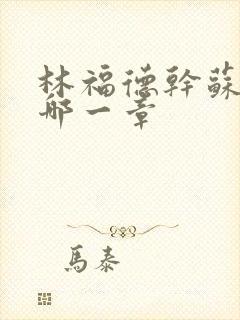 林福德幹蘇
哪一章
馬泰